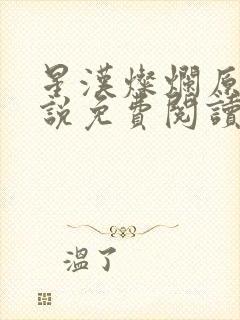 星漢燦爛原
說免費閱讀
溫了